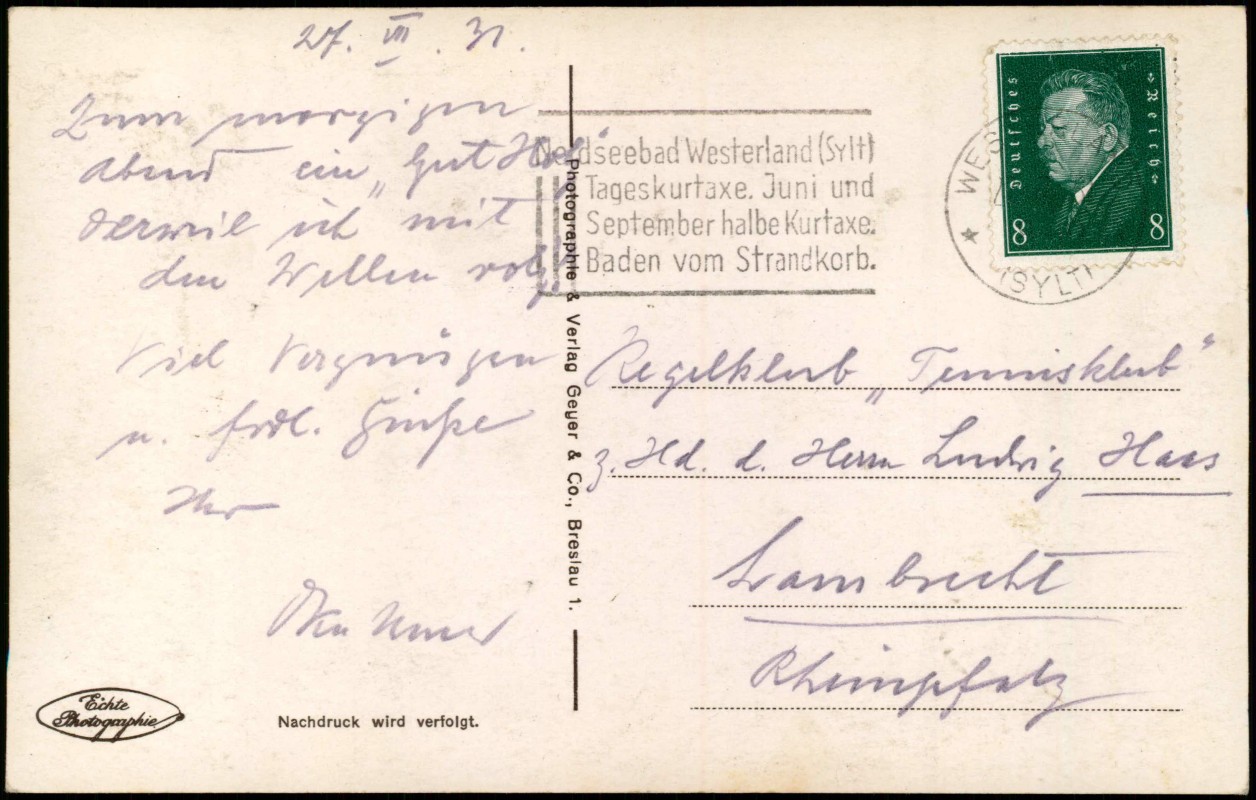 27. VII. 31.
Zum morgigen
Abend ein „Gut Holz"
derweil ich mit
den Wellen
Viel Vergnügen
u. frdl. Grüße
Ihr
Nordseebad Westerland (Sylt)
Tageskurtaxe. Juni und
September halbe Kurtaxe.
Baden vom Strandkorb.
Deutsches Reich
8 8
WES
(SYLT)
Photographie & Verlag Geyer & Co., Breslau 1.
Kegelklub „Tennisklub"
z. Hd. d. Herrn Ludwig Haas
Lambrecht
Rheinpfalz
Echte
Photographie
Nachdruck wird verfolgt.